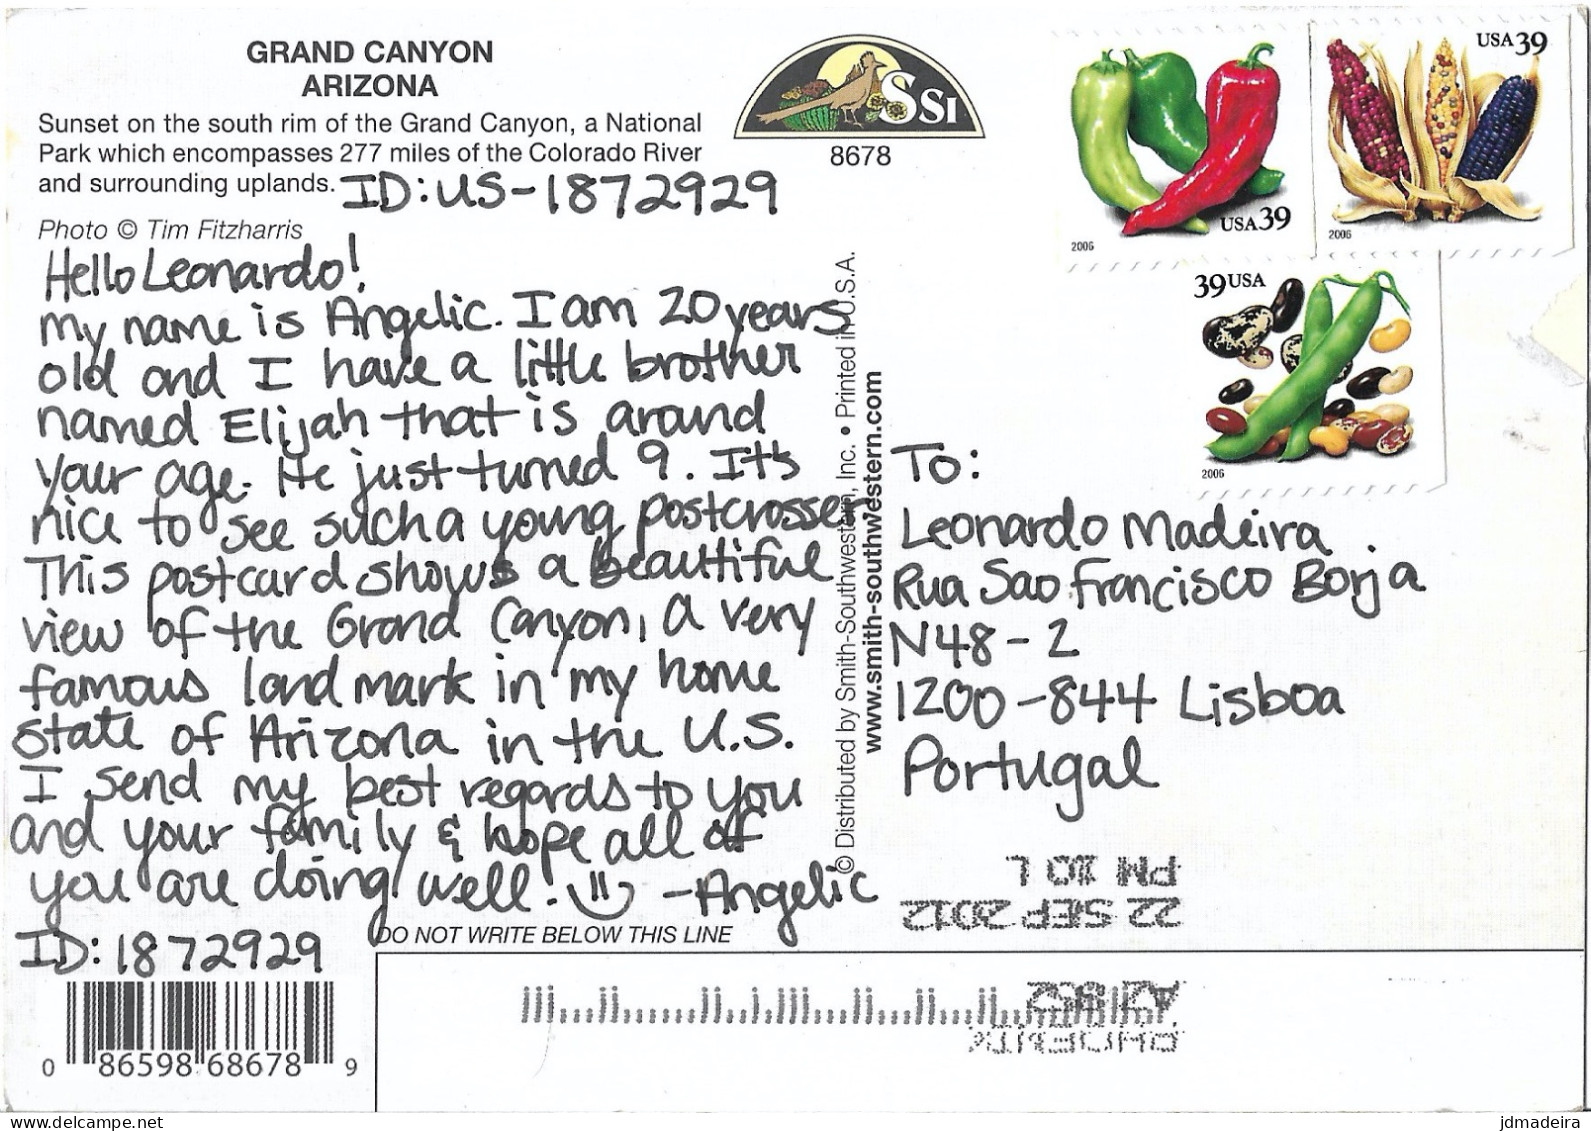 GRAND CANYON
ARIZONA
Sunset on the south rim of the Grand Canyon, a National
Park which encompasses 277 miles of the Colorado River
and surrounding uplands.
ID:US-1872929
Photo © Tim Fitzharris
Hello Leonardo!
My name is Angelic. I am 20 years
old and I have a little brother
named Elijah that is around
your age. He just turned 9. It's
nice to see such a young postcrosser.
This postcard shows a beautiful
view of the Grand Canyon, a very
famous landmark in my home
state of Arizona in the U.S.
I send my best regards to you
and your family & hope all of
you are doing well! -Angelic
ID: 1872929
DO NOT WRITE BELOW THIS LINE
0 86598 68678 9
SSI
8678
© Distributed by Smith-Southwestern, Inc. • Printed in U.S.A.
www.smith-southwestern.com
USA 39
2006
USA 39
2006
39 USA
2006
To:
Leonardo Madeira
Rua Sao Francisco Borja
N48-2
1200-844 Lisboa
Portugal
PM 10 L
22 SEP 2012
PHOENIX
jdmadeira
www.delcampe.net